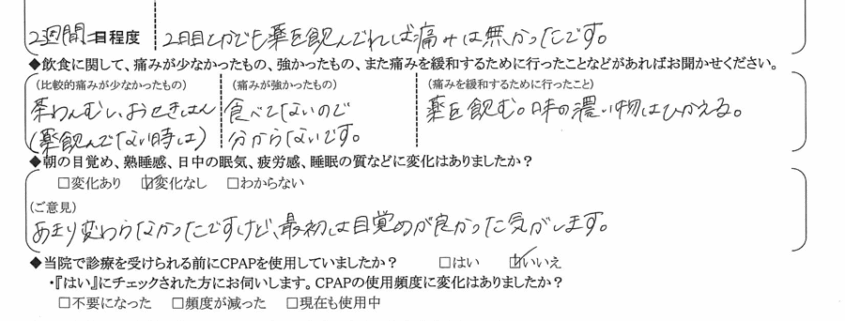 2週間 目程度 2日目とかでも薬を飲んでれば痛みは無かったです。
◆飲食に関して、痛みが少なかったもの、強かったもの、また痛みを緩和するために行ったことなどがあればお聞かせください。
(比較的痛みが少なかったもの) (痛みが強かったもの) (痛みを緩和するために行ったこと)
茶わんむし、おせきはん 食べてないので 薬を飲む。味の濃い物はひかえる。
(薬飲んでない時は) 分からないです。
◆朝の目覚め、熟睡感、日中の眠気、疲労感、睡眠の質などに変化はありましたか?
□変化あり ☑変化なし □わからない
(ご意見)
あまり変わらなかったですけど、最初は目覚めが良かった気がします。
◆当院で診療を受けられる前にCPAPを使用していましたか? □はい ☑いいえ
・『はい』にチェックされた方にお伺いします。CPAPの使用頻度に変化はありましたか?
□不要になった □頻度が減った □現在も使用中